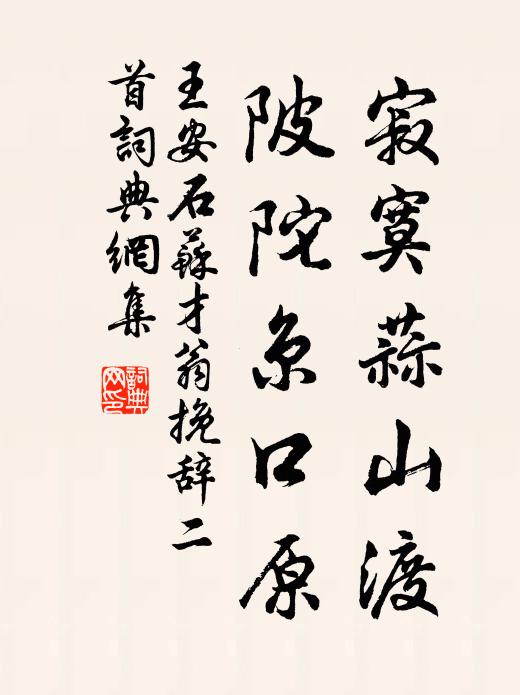 寂寞蒜山渡
陂陀京口原
王安石蘇才翁挽辞二
首詞典網集
詞典網印